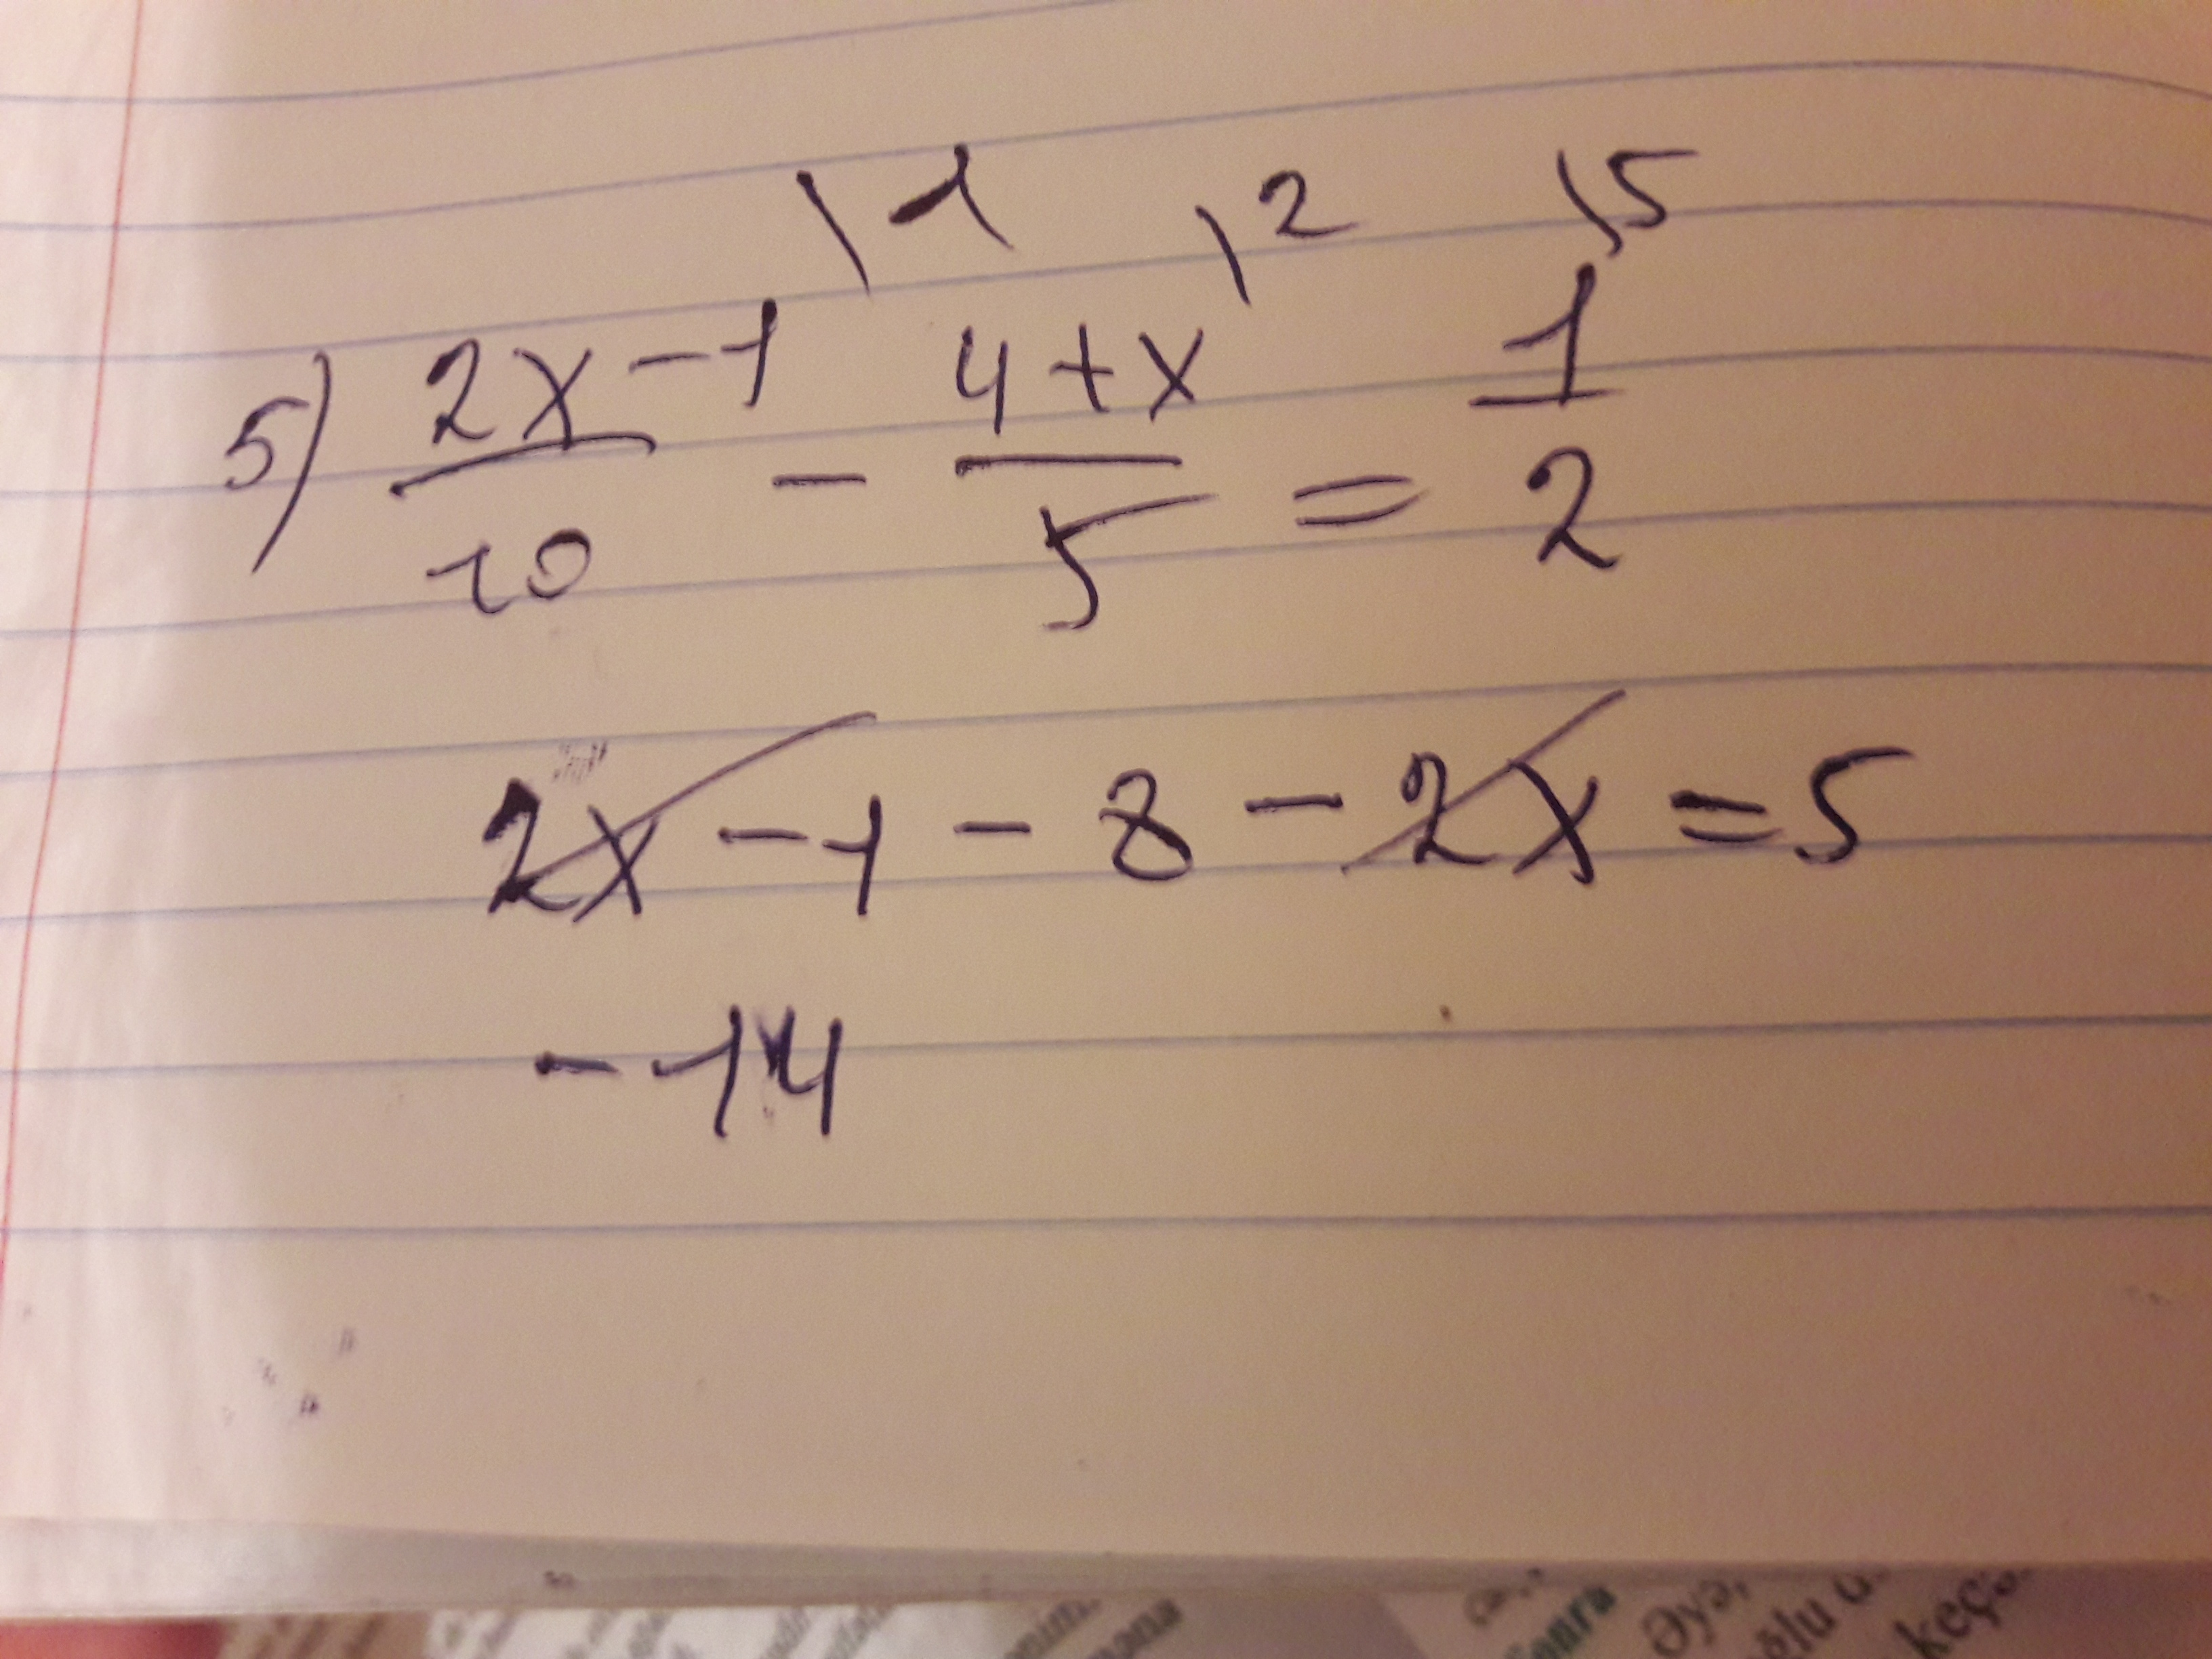 \1 \2 \5
5) 2x-1 / 10 - 4+x / 5 = 1 / 2
2x - 1 - 8 - 2x = 5
- 14
Sonra
Əyə,
keçə